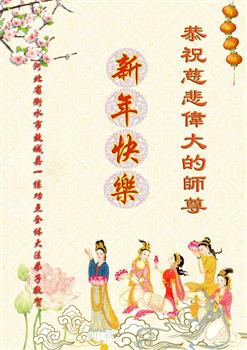 恭祝慈悲偉大的師尊
新年快樂
河北省衡水市故城县一练功点全体大法弟子敬贺